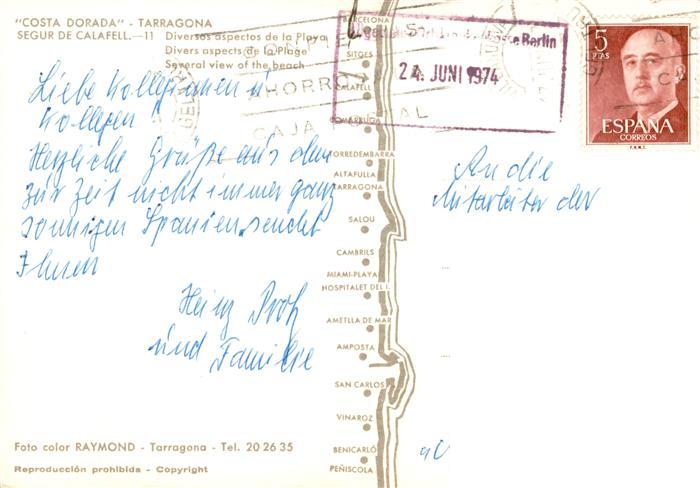 "COSTA DORADA" - TARRAGONA
SEGUR DE CALAFELL.-11 Diversos aspectos de la Playa
Divers aspects de la Plage
Several view of the beach
Liebe Kolleginnen u
Kollegen!
Herzliche Grüße aus dem
zur Zeit nicht immer ganz
sonnigen Spanien sendet
Ihnen
Heinz
und Familie
BARCELONA
SITGES
CALAFELL
COMARRUGA
TORREDEMBARRA
ALTAFULLA
TARRAGONA
SALOU
CAMBRILS
MIAMI-PLAYA
HOSPITALET DEL I.
AMETLLA DE MAR
AMPOSTA
SAN CARLOS
VINAROZ
BENICARLÓ
PEÑISCOLA
AHORRO
CAJA POSTAL
Berlin
24. JUNI 1974
5
PTAS
ESPAÑA
CORREOS
F.N.M.T.
An die
Mitarbeiter der
Foto color RAYMOND - Tarragona - Tel. 20 26 35
Reproducción prohibida - Copyright